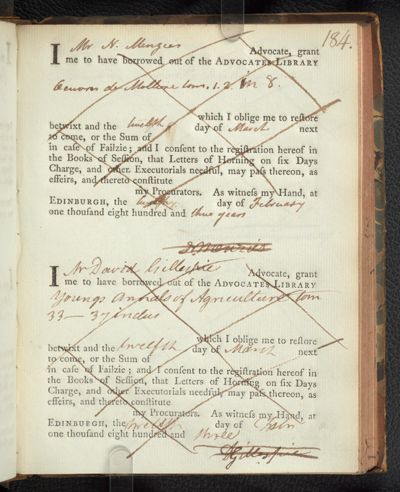 184.
I Mr N. Menzies Advocate, grant
me to have borrowed out of the ADVOCATES LIBRARY
Oeuvres de Moliere tom. 1. 2. in 8.
which I oblige me to reſtore
betwixt and the twelfth day of March next
to come, or the Sum of
in caſe of Failzie; and I conſent to the regiſtration hereof in
the Books of Seſſion, that Letters of Horning on ſix Days
Charge, and other Executorials needful, may paſs thereon, as
effeirs, and thereto conſtitute
my Procurators. As witneſs my Hand, at
EDINBURGH, the twelfth day of February
one thouſand eight hundred and three years
I Mr David Gillespie Advocate, grant
me to have borrowed out of the ADVOCATES LIBRARY
Youngs Annals of Agriculture tom
33 — 37 inclus
which I oblige me to reſtore
betwixt and the twelfth day of March next
to come, or the Sum of
in caſe of Failzie; and I conſent to the regiſtration hereof in
the Books of Seſſion, that Letters of Horning on ſix Days
Charge, and other Executorials needful, may paſs thereon, as
effeirs, and thereto conſtitute
my Procurators. As witneſs my Hand, at
EDINBURGH, the twelfth day of
one thouſand eight hundred and three
DGillespie